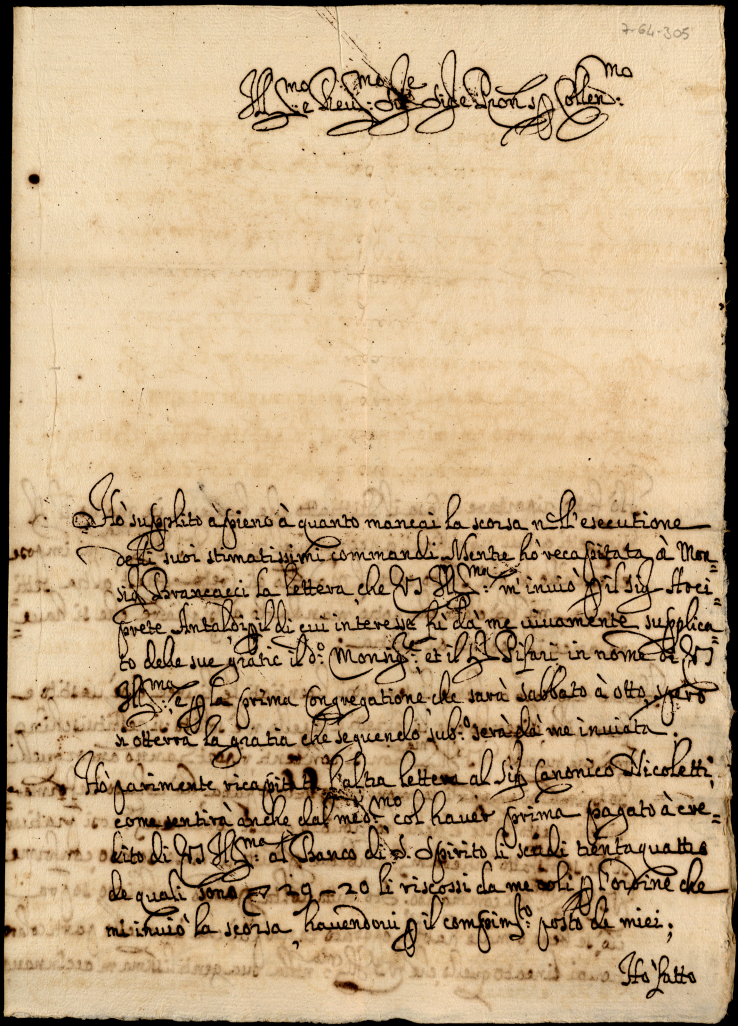 7-64-305
Ill.mo e Rev.mo Sig.re Sig.re e Pron p Collen.mo
Hò supplito à pieno à quanto mancai la scorsa nell'esecutione
delli suoi stimatissimi commandi. Mentre hò recapitata à Mon=
sig.r Brancacci la lettera che VS Ill.ma m'inuiò p il Sig.r Arci=
prete Antaldi, p il di cui interesse fù da me uiuamente supplica=
to delle sue gratie il d.o Monsig.re et il S.r Pifari in nome di VS
Ill.ma e p la prima Congregatione che sarà sabbato à otto, spero
si otterrà la gratia che seguendo sub.o serà da me inuiata.
Hò parimente ricapitata l'altra lettera al Sig.r Canonico Nicoletti,
come sentirà anche dal med.mo col hauer prima pagato à cre=
dito di VS Ill.ma al Banco di S. Spirito li scudi trentaquattro
de quali sono 29-20 li riscossi da me colì p l'ordine che
mi inuiò la scorsa, hauendoui p il compim.to posto de miei;
Hò fatto